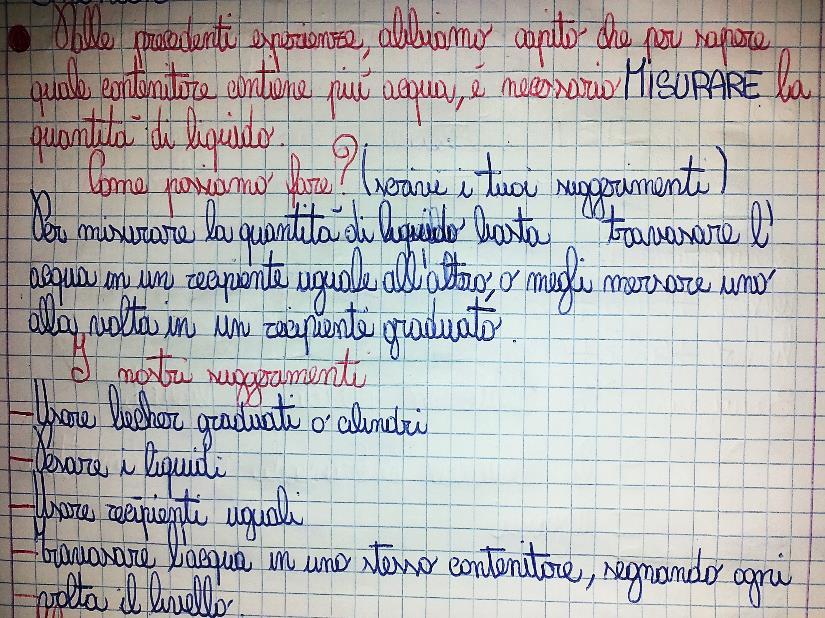 Nelle precedenti esperienze, abbiamo capito che per sapere
quale contenitore contiene più acqua, è necessario MISURARE la
quantità di liquido.
Come possiamo fare? (scrivi i tuoi suggerimenti)
Per misurare la quantità di liquido basta travasare l'
acqua in un recipiente uguale all'altro, o megli mersare uno
alla volta in un recipiente graduato.
I nostri suggerimenti
-Usare becher graduati o cilindri
-Pesare i liquidi
-Usare recipienti uguali
-travasare l'acqua in uno stesso contenitore, segnando ogni
volta il livello.